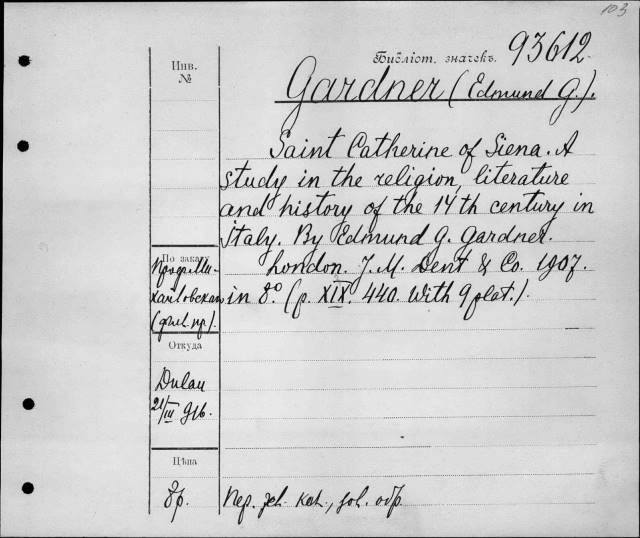 103
Инв.
№
Библіот. значекъ. 93612.
Gardner (Edmund G.).
Saint Catherine of Siena. A
study in the religion, literature
and history of the 14th century in
Italy. By Edmund G. Gardner.
London. J. M. Dent & Co. 1907.
in 8.º (p. XIX. 440. With 9 plat.).
По заказу
Проф. Ми-
хайловская
Откуда
Dulau
21/III 916.
Цѣна
8р.
Пер.